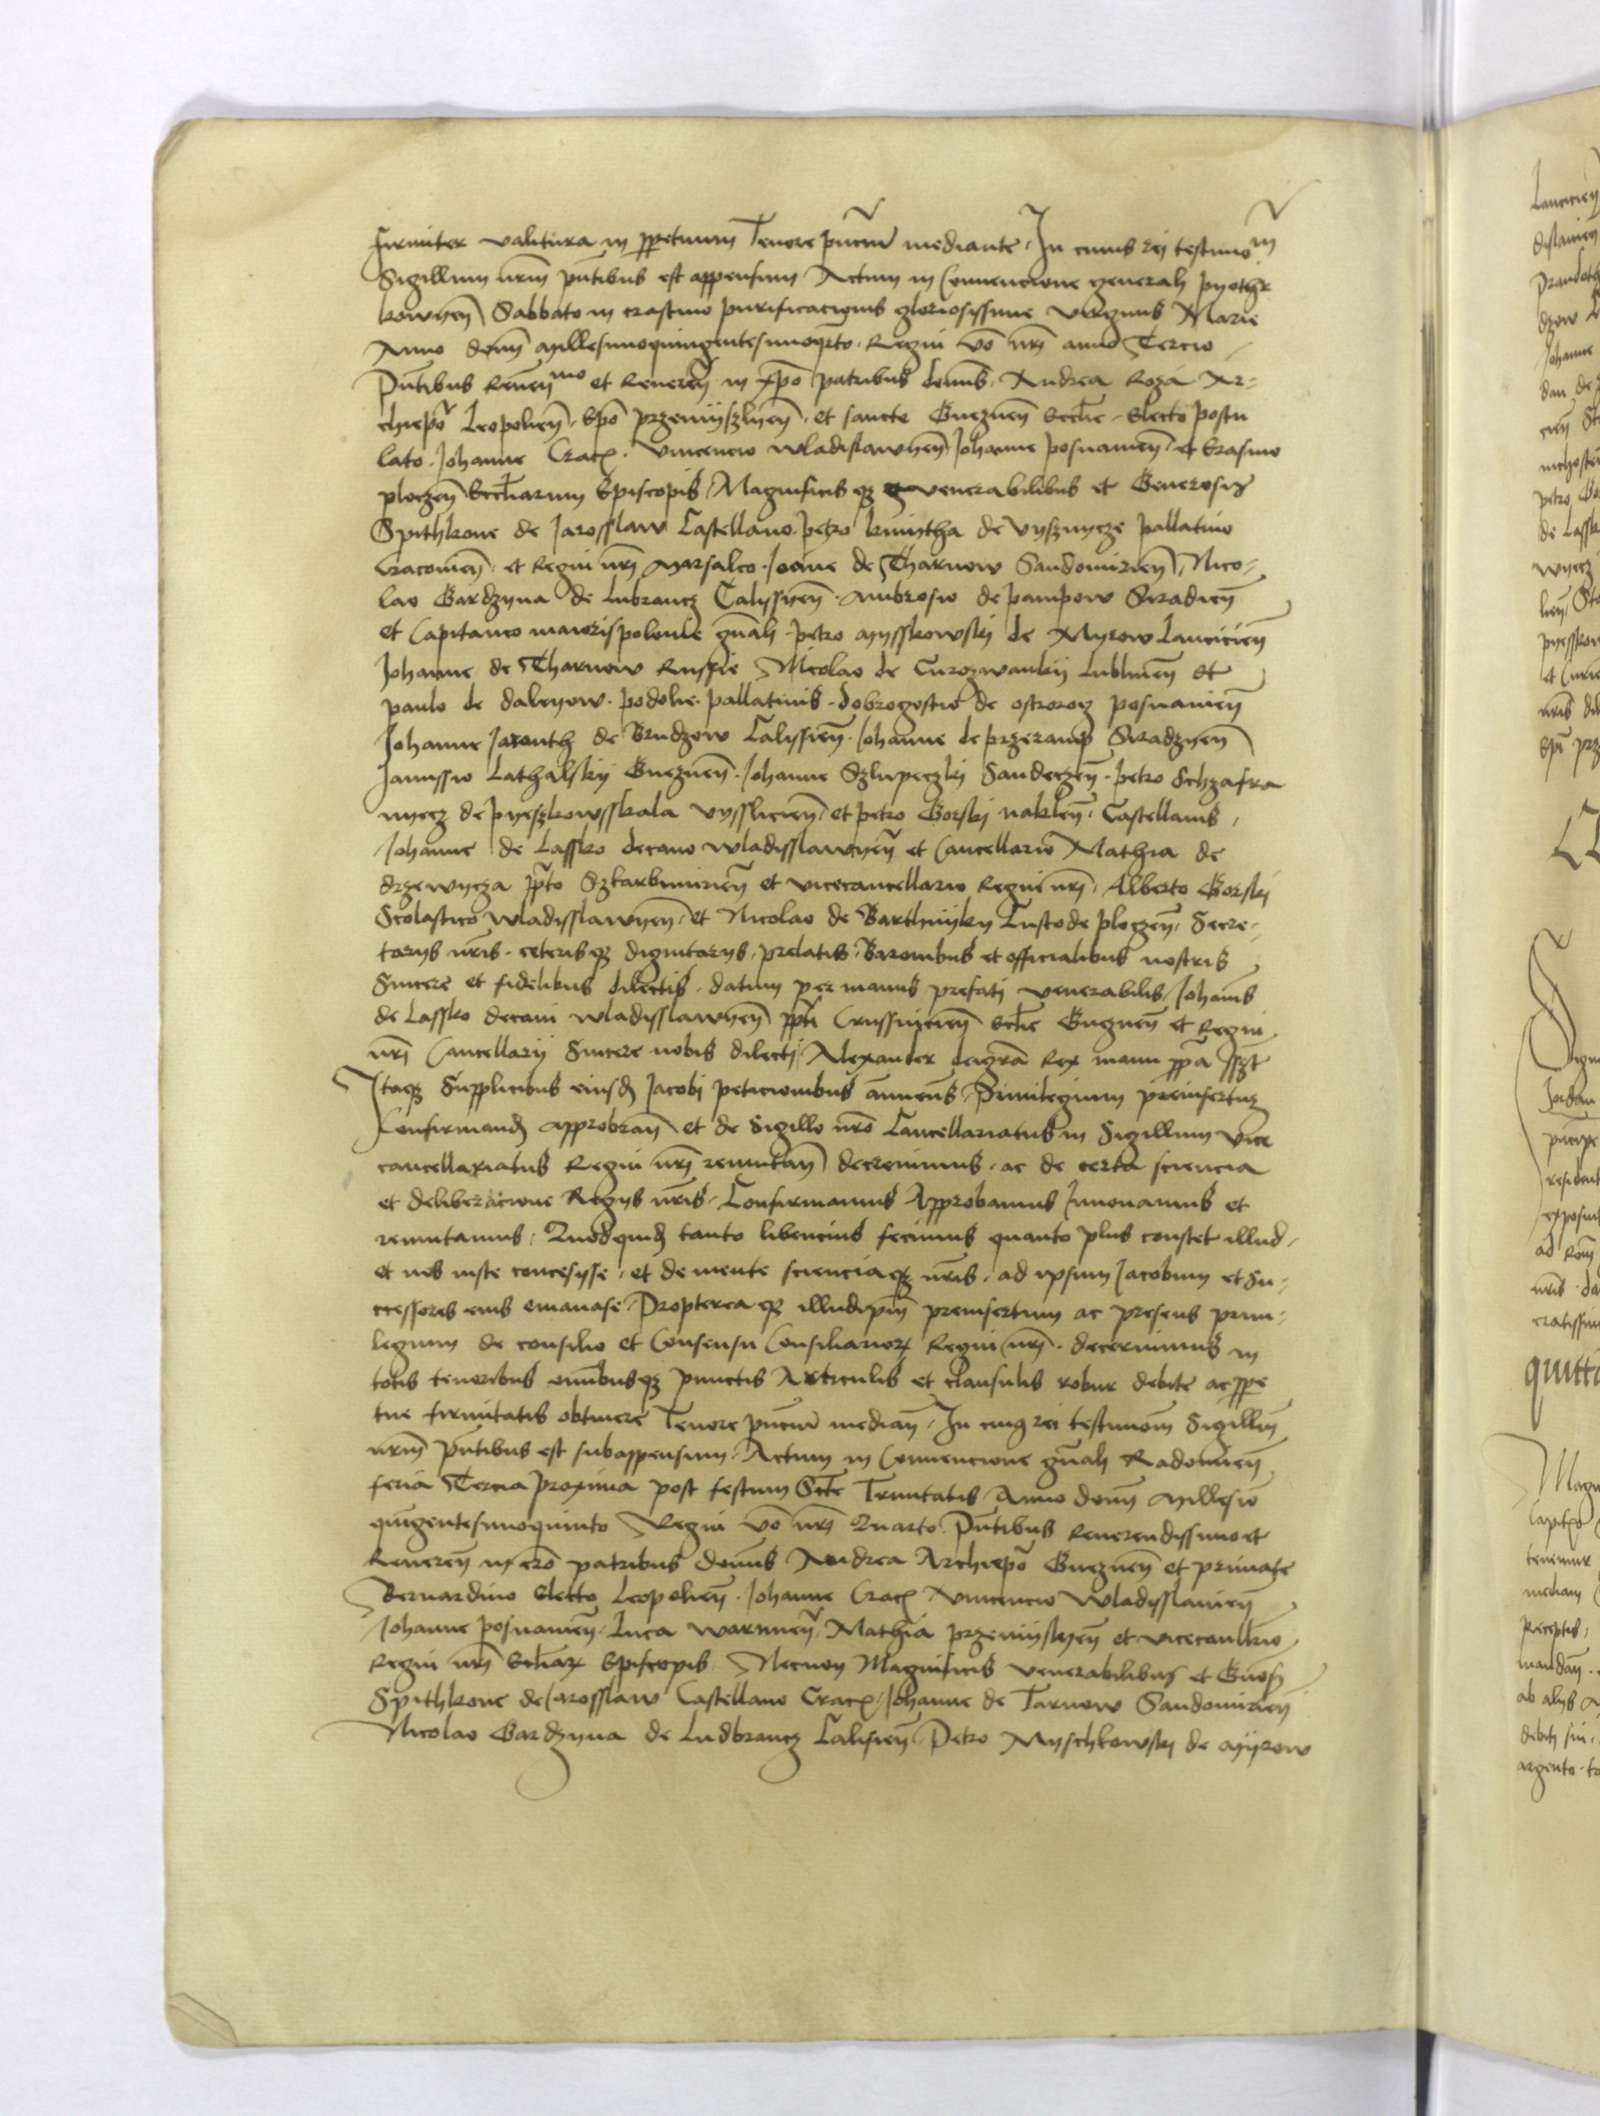 firmiter valitura in ppetuum Tenore pñciũ mediante In cuius rei testimo m
Sigillum nrm pñtibus est appensum Actum in Convencione generali pyothr
kowyeñ Sabbato in crastino purificacionis gloriosissime virginis Marie
Anno domi millesimoquingentesimoqrto Regni vo nri anno Tercio
Pñtibus Reueñ mo et Reuereñ in xpo patribus domis Andrea Roza Ar-
chiepo Leopolieñ Epo przemyszlyeñ et sancte Gnezneñ Ecclie Electo postu
lato Johanne Crac Vincencio wladislawyeñ Johanne posnanieñ et Erasmo
ploczeñ Eccliarum Episcopis Magnificis qz venerabilibus et Generosis
Spithkone de Jarosslaw Castellano petro kmytha de Vysznycze pallatino
Cracovieñ et Regni nri Marsalco Joane de Tharnow Sandomirieñ Nico-
lao Gardzyna de lubrancz Calyssyeñ Ambrosio de pampow Siradieñ
et Capitaneo maiorispolonie gnali petro Mysskowskj de Myrow Lanciccieñ
Johanne de Tharnow Russie Nicolao de Curozwankij lublineñ et
paulo de dabeyow podolie pallatinis dobrogostio de ostrorog posnanieñ
Johanne Jaranth de Brudzow Calyssieñ Johanne de przeramp Siradzyeñ
Janussio Lathalskij Gnezneñ Johanne Szlupeczkj Sandeczeñ petro Schzafra
nyecz de pyeszkowsskala Vysslicieñ et petro Gorskj nakleñ Castellanis
Johanne de Lassko decano wladysslawyeñ et Cancellario Mathia de
drzewycza ppto Szkarbimirieñ et vicecancellario Regni nri Alberto Gorskj
Scolastico wladysslawyeñ et Nicolao de Barthnyky Custode ploczeñ Secre-
tarijs nris ceterisqz dignitarijs prelatis Baronibus et officialibus nostris
Sincere et fidelibus dilectis datum per manus prefatj venerabilis Johanis
de Lassko decani wladysslawyeñ ppti Crussuicieñ Eclie Gnezneñ et Regni
nri Cancellarij Sincere nobis dilectj Alexander deigra Rex manu ppa sszt
Itaqz Supplicibus eiusd Jacobj peticionibus annueñs Priuilegium preinsertuz
Confirmand approbrañ et de Sigillo nro Cancellariatus in Sigillum vice
cancellariatus Regni nri renutañ decreuimus ac de certa sciencia
et deliberacione Regijs nris Confirmamus Approbamus Innouamus et
renutamus Quodquid tanto libencius fecimus quanto plus constet illud
et nos iuste concesysse et de mente scienciaqz nris ad ipsum Jacobum et Su-
ccessores eius emanase Proptereaqz illudipm preinsertum ac presens priui-
legium de consilio et Consensu Consiliarior Regni nri decernimus in
totis tenoribus omibusqz punctis Articulis et clausulis robur debite ac ppe
tue firmitatis obtinere Tenore pñciũ mediañ In cuig rei testimom Sigillũ
nrm pñtibus est subappensum Actum in Convencione gnali Radomieñ
feria Tercia proxima post festum Scte Trinitatis Anno domi Millesio
quingentesimoquinto Regni vo nri Quarto Pñtibus Reuerendissimo et
Reuereñ in cro patribus domis Andrea Archiepo Gnezneñ et primate
Bernardino Electo Leopolieñ Johanne Crac Vincencio Wladysslauieñ
Johanne posnanieñ Luca warmieñ Mathia przemyslyeñ et vicecanllrio
Regni nri Ecliar Episcopis Necnon Magnificis venerabilibus et Gnosis
Spithkone de Jarosslaw Castellano Crac Johanne de Tarnow Sandomirieñ
Nicolao Gardzyna de Ludbrancz Calisieñ Petro Myschkowskj de Myrow